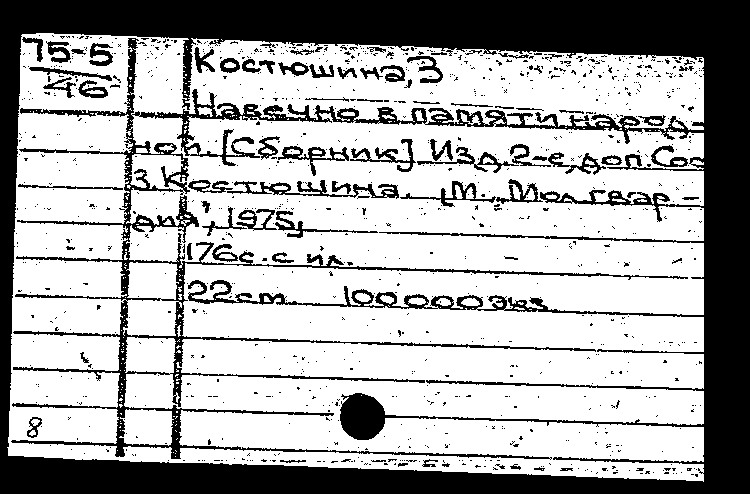 75-5
46
Костюшина, З
Навечно в памяти народ-
ной. [Сборник] Изд. 2-е, доп. Сос
З. Костюшина. [М., "Мол гвар-
дия", 1975]
176с. с ил.
22см. 100000экз.
8